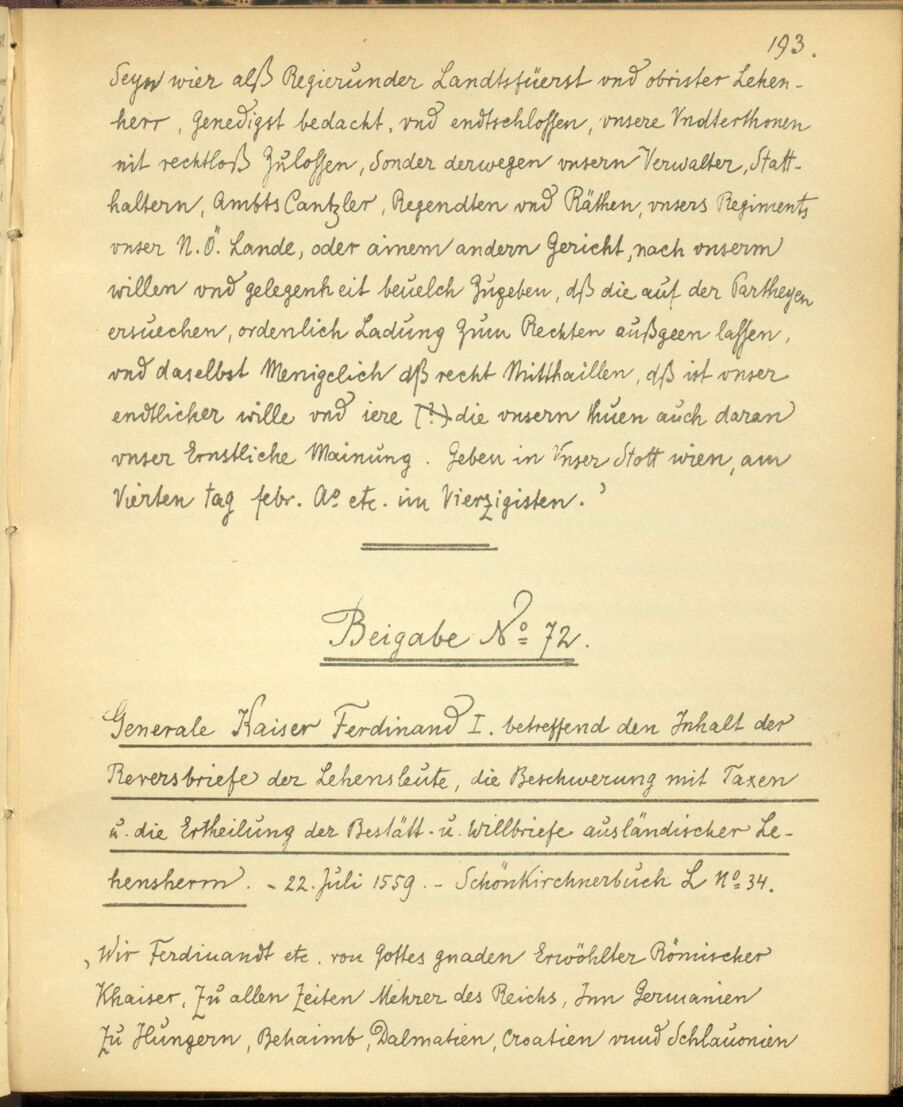 193.
Seyn wier alß Regierunder Landtsfüerst vnd obrister Lehen-
herr, Genedigst bedacht, vnd endtschlossen, vnsere Vndterthonen
nit rechtloß Zulossen, Sonder derwegen vnsern Verwalter, Statt-
haltern, Ambts Cantzler, Regendten vnd Räthen, vnsers Regiments
vnser N. Ö. Lande, oder ainem andern Gericht, nach vnserm
willen vnd gelegenheit beuelch Zugeben, dß die auf der Partheyen
ersuechen, ordenlich Ladung Zum Rechten außgeen lassen,
vnd daselbst Menigclich dß recht Mitthaillen, dß ist vnser
endtlicher wille vnd iere (?) die vnsern thuen auch daran
vnser Ernstliche Mainung. Geben in Vnser Stott wien, am
Vierten tag febr. Ao. etc. im Vierzigisten.'
Beigabe No. 72.
Generale Kaiser Ferdinand I. betreffend den Inhalt der
Reversbriefe der Lehensleute, die Beschwerung mit Taxen
u. die Ertheilung der Bestätt- u. Willbriefe ausländischer Le-
hensherrn. - 22. Juli 1559. - Schönkirchnerbuch L No. 34.
‚Wir Ferdinandt etc. von Gottes gnaden Erwöhlter Römischer
Khaiser, Zu allen Zeiten Mehrer des Reichs, Inn Germanien
Zu Hungern, Behaimb, Dalmatien, Croatien vnnd Schlauonien